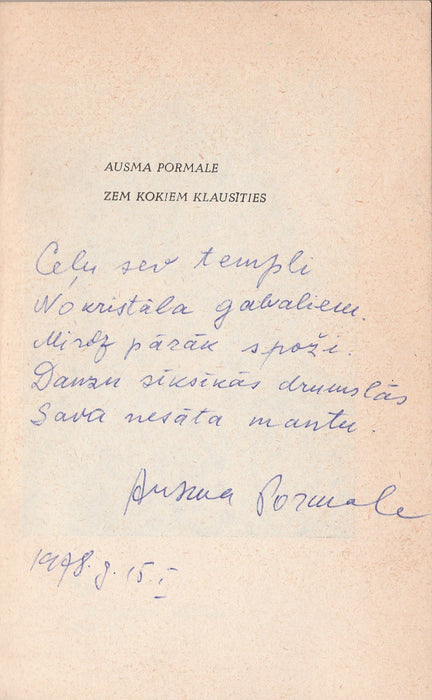 AUSMA PORMALE
ZEM KOKIEM KLAUSĪTIES
Ceļu sev templi
No kristāla gabaliem.
Mirdz pārāk spoži.
Daužu sīksīkās drumslās
Sava nesāta mantu.
Ausma Pormale
1978. g. 15. I